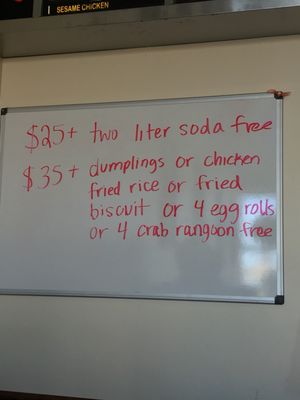 SESAME CHICKEN
$25+ two liter soda free
$35+ dumplings or chicken
fried rice or fried
biscuit or 4 egg rolls
or 4 crab rangoon free